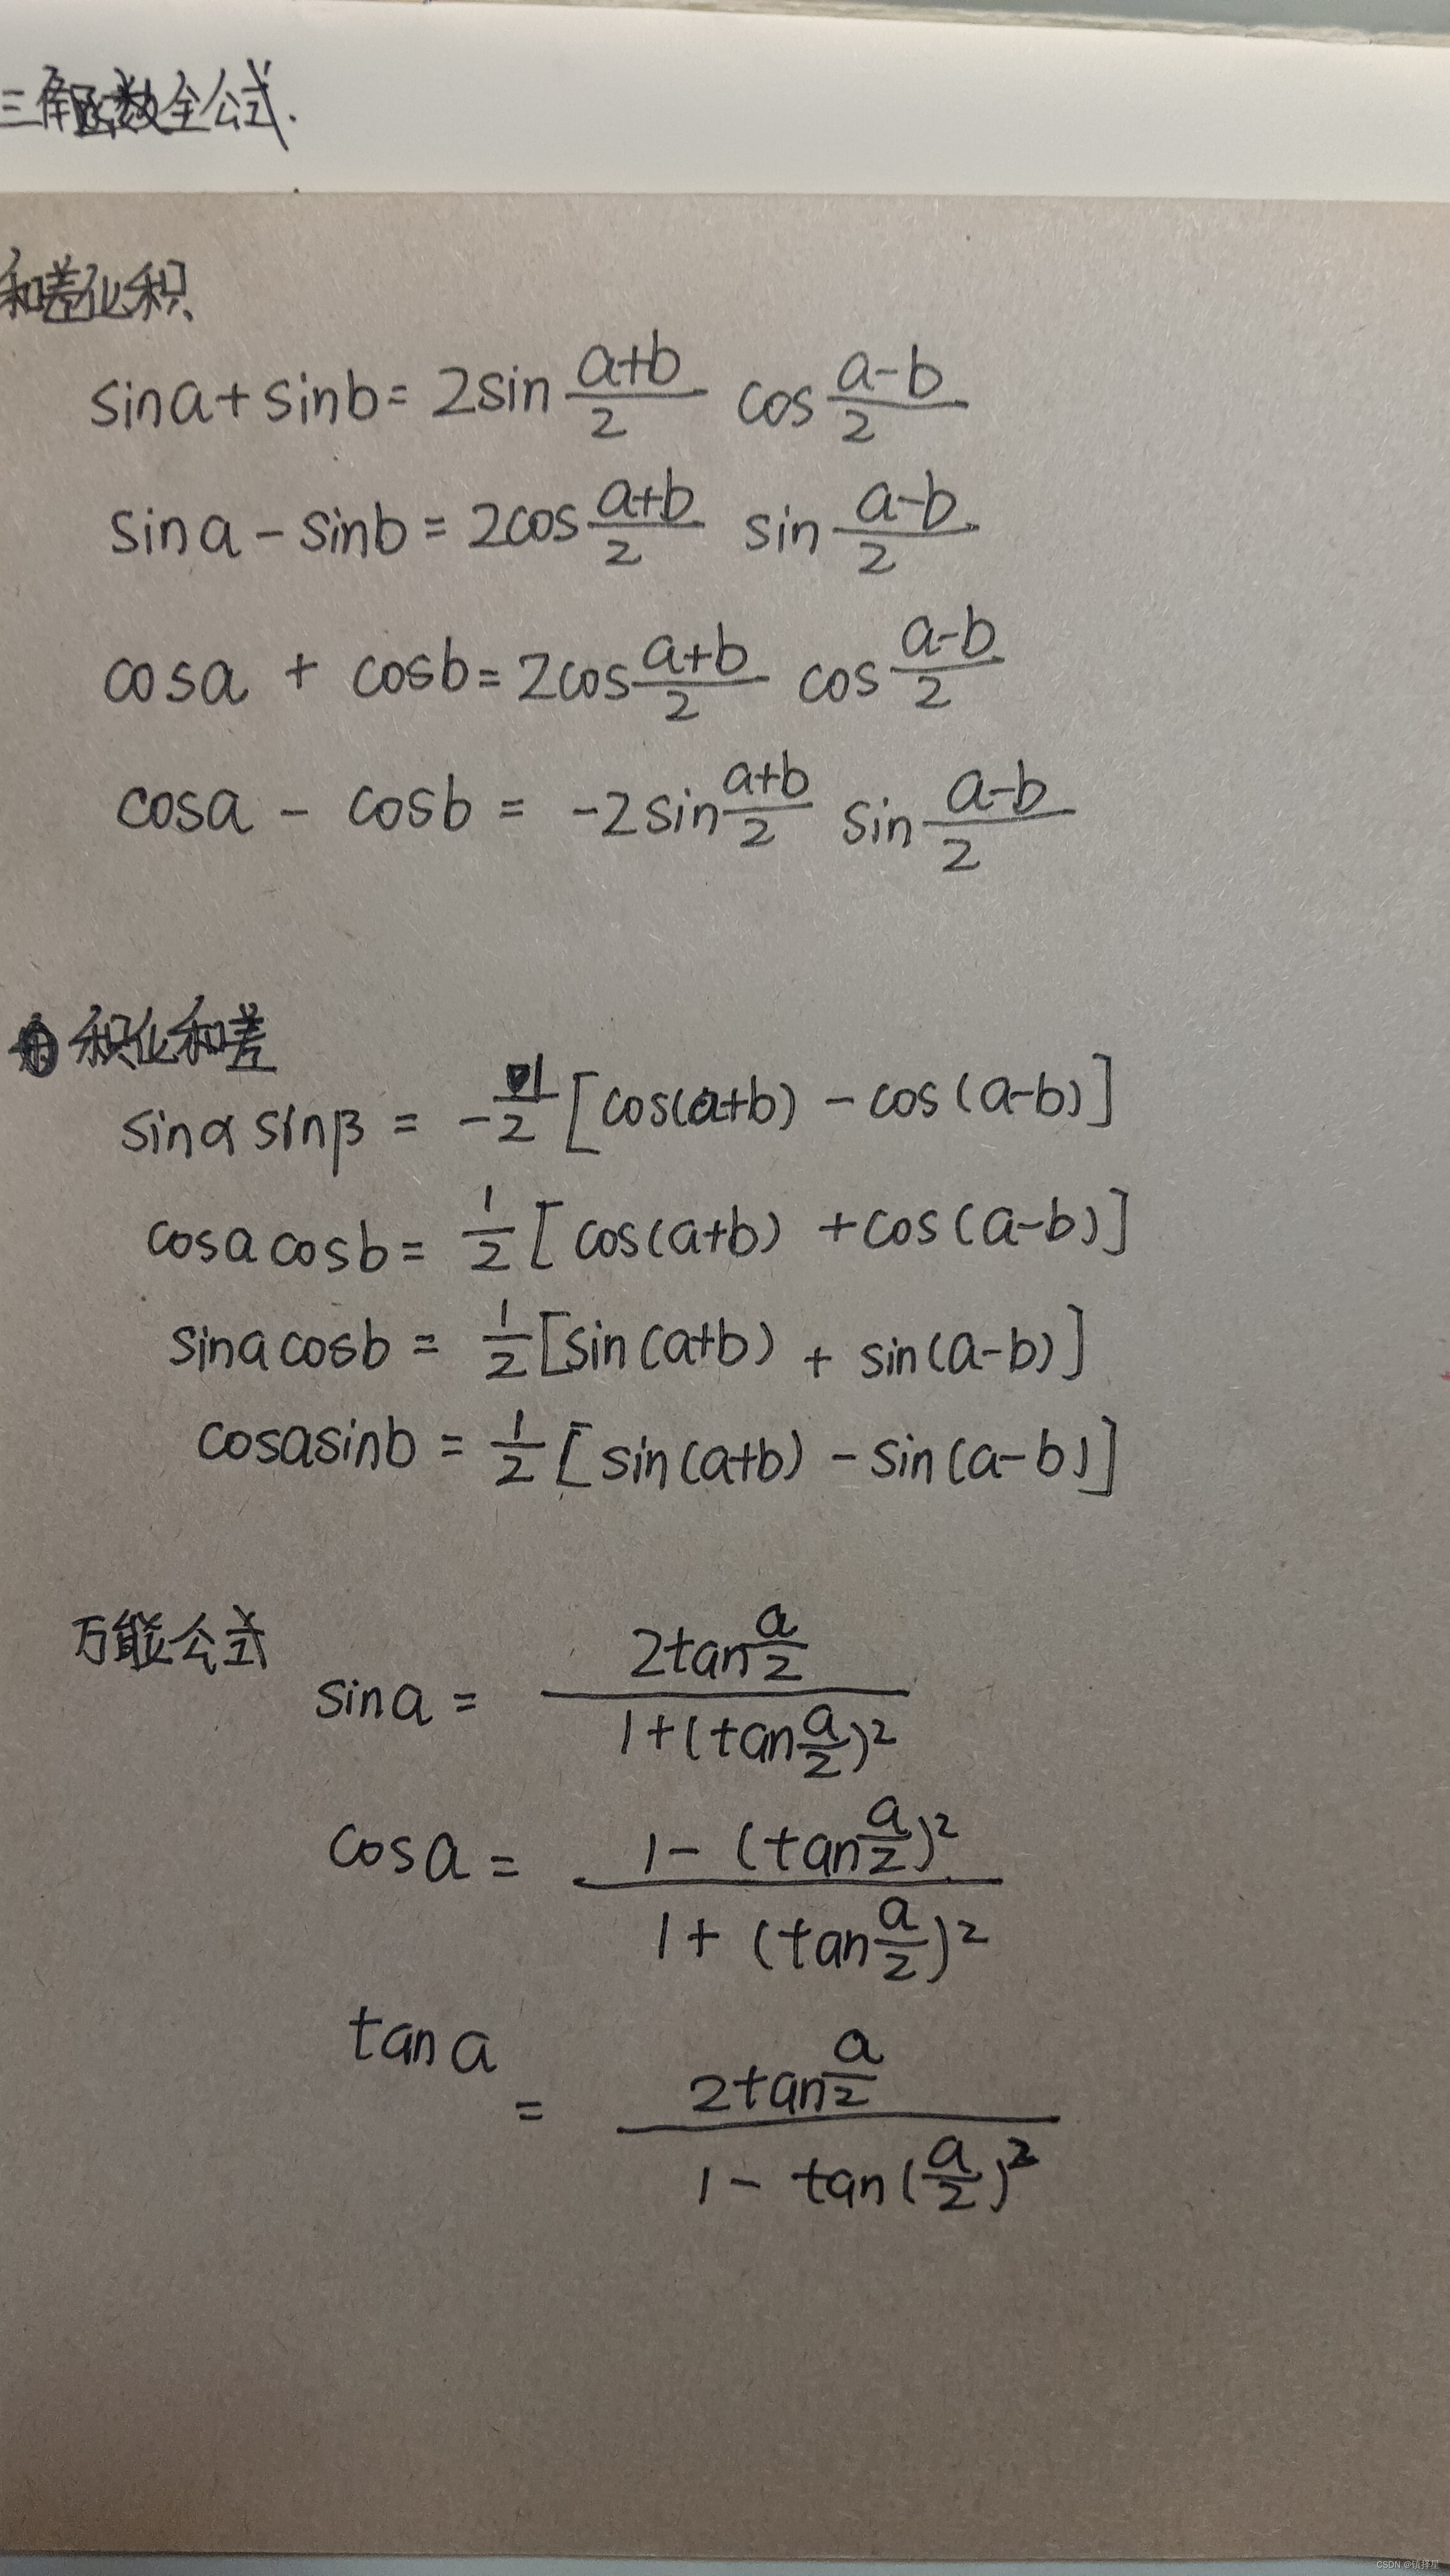 三角函数全公式.
和差化积
sina+sinb= 2sin\frac{a+b}{2} cos\frac{a-b}{2}
sina-sinb=2cos\frac{a+b}{2} sin\frac{a-b}{2}
cosa + cosb=2cos\frac{a+b}{2} cos\frac{a-b}{2}
cosa - cosb = -2sin\frac{a+b}{2} sin\frac{a-b}{2}
积化和差
sinαsinβ = -\frac{1}{2}[cos(a+b) - cos(a-b)]
cosacosb=\frac{1}{2}[cos(a+b) +cos(a-b)]
sinacosb = \frac{1}{2}[sin(a+b) + sin(a-b)]
cosasinb = \frac{1}{2}[sin(a+b) - sin(a-b)]
万能公式
sina = \frac{2tan\frac{a}{2}}{1+(tan\frac{a}{2})^2}
cosa = \frac{1-(tan\frac{a}{2})^2}{1+(tan\frac{a}{2})^2}
tana = \frac{2tan\frac{a}{2}}{1-tan(\frac{a}{2})^2}